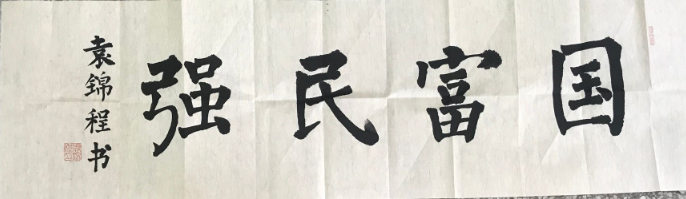 国富民强
袁錦程书